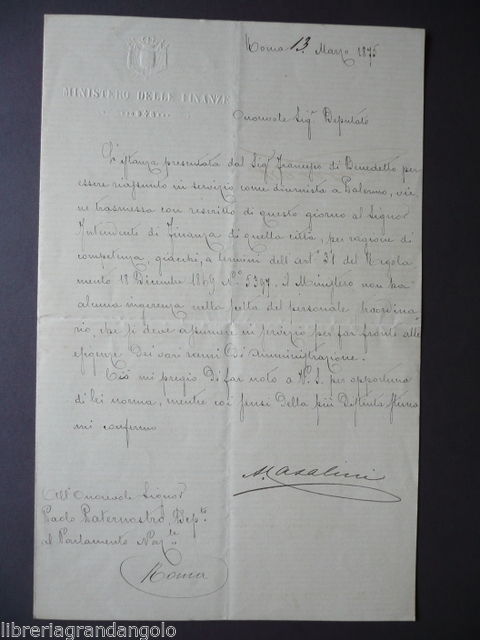 Roma 13 Marzo 1875
MINISTERO DELLE FINANZE
Onorevole Sigr Deputato
L'istanza presentata dal Sigr Francesco di Benedetto per
essere riassunto in servizio come diurnista a Palermo, vie
ne trasmessa con rescritto di questo giorno al Signor
Intendente di Finanza di quella città, per ragione di
competenza, giacchè, a termini dell'art° 31 del Regola
mento 18 Dicembre 1869 N° 5397. il Ministero non ha
alcuna ingerenza nella scelta del personale straordina
rio, che si deve assumere in servizio per far fronte alle
esigenze dei vari rami di Amministrazione.
Ciò mi pregio di far noto a V. S. per opportuna
di lei norma, mentre coi sensi della più distinta stima
mi confermo
All'Onorevole Signor
Paolo Paternostro, Depto
al Parlamento Nazle
Roma
libreriagrandangolo